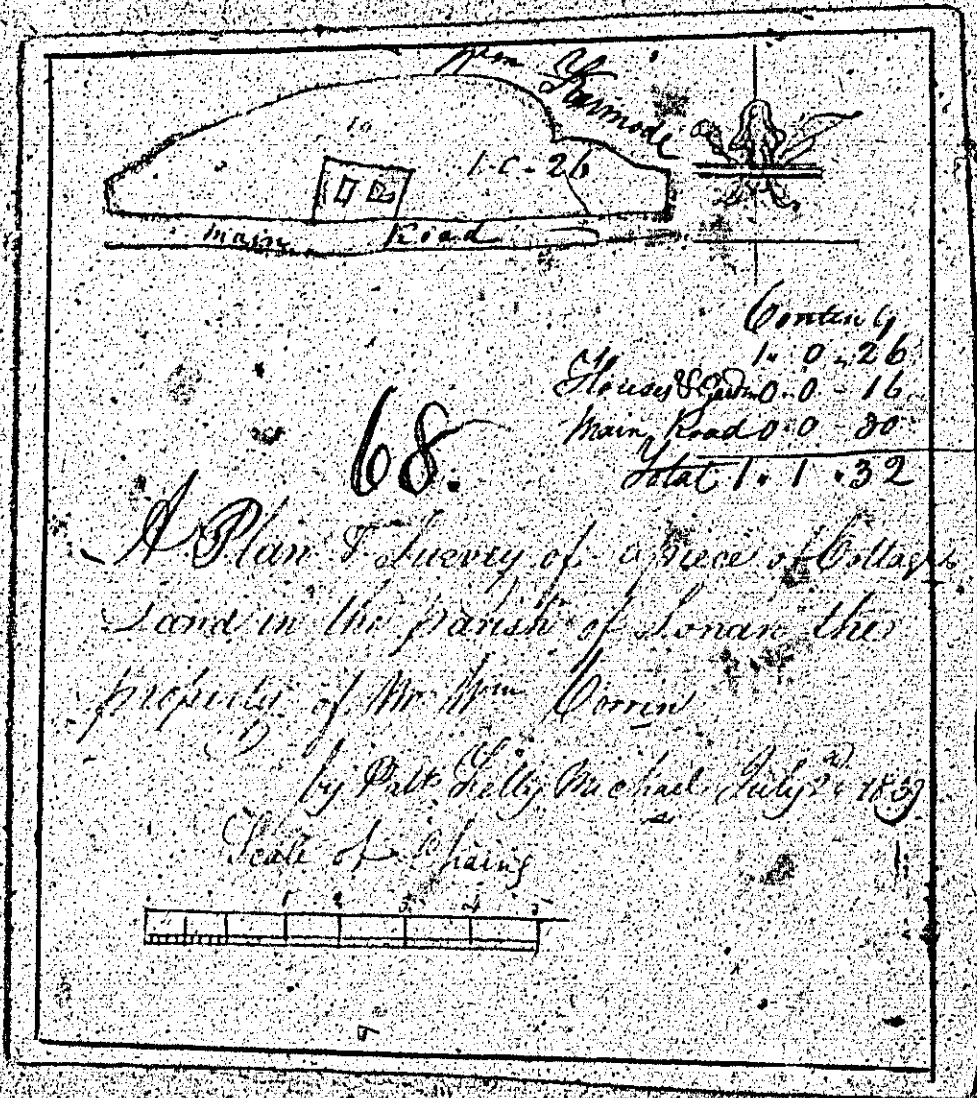 Wm Kermode
10
1-C-26
Main Road
Contents
1. 0. 26
Houses & Gardn 0. 0 - 16
Main Road 0. 0 - 30
Total 1. 1. 32
68.
A Plan & Survey of a piece of Cottage
Land in the parish of Lonan the
property of Mr Wm Corrin
by Patk Kelly Michael July 2d 1839
Scale of Chains